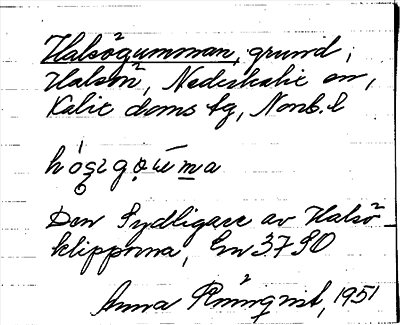 Halsögumman, grund,
Halsön, Nederkalix sn,
Kalix doms lg, Nonb. l
Den Sydligare av Halsö-
klipporna, En 3790
Anna Rönnqvist, 1951